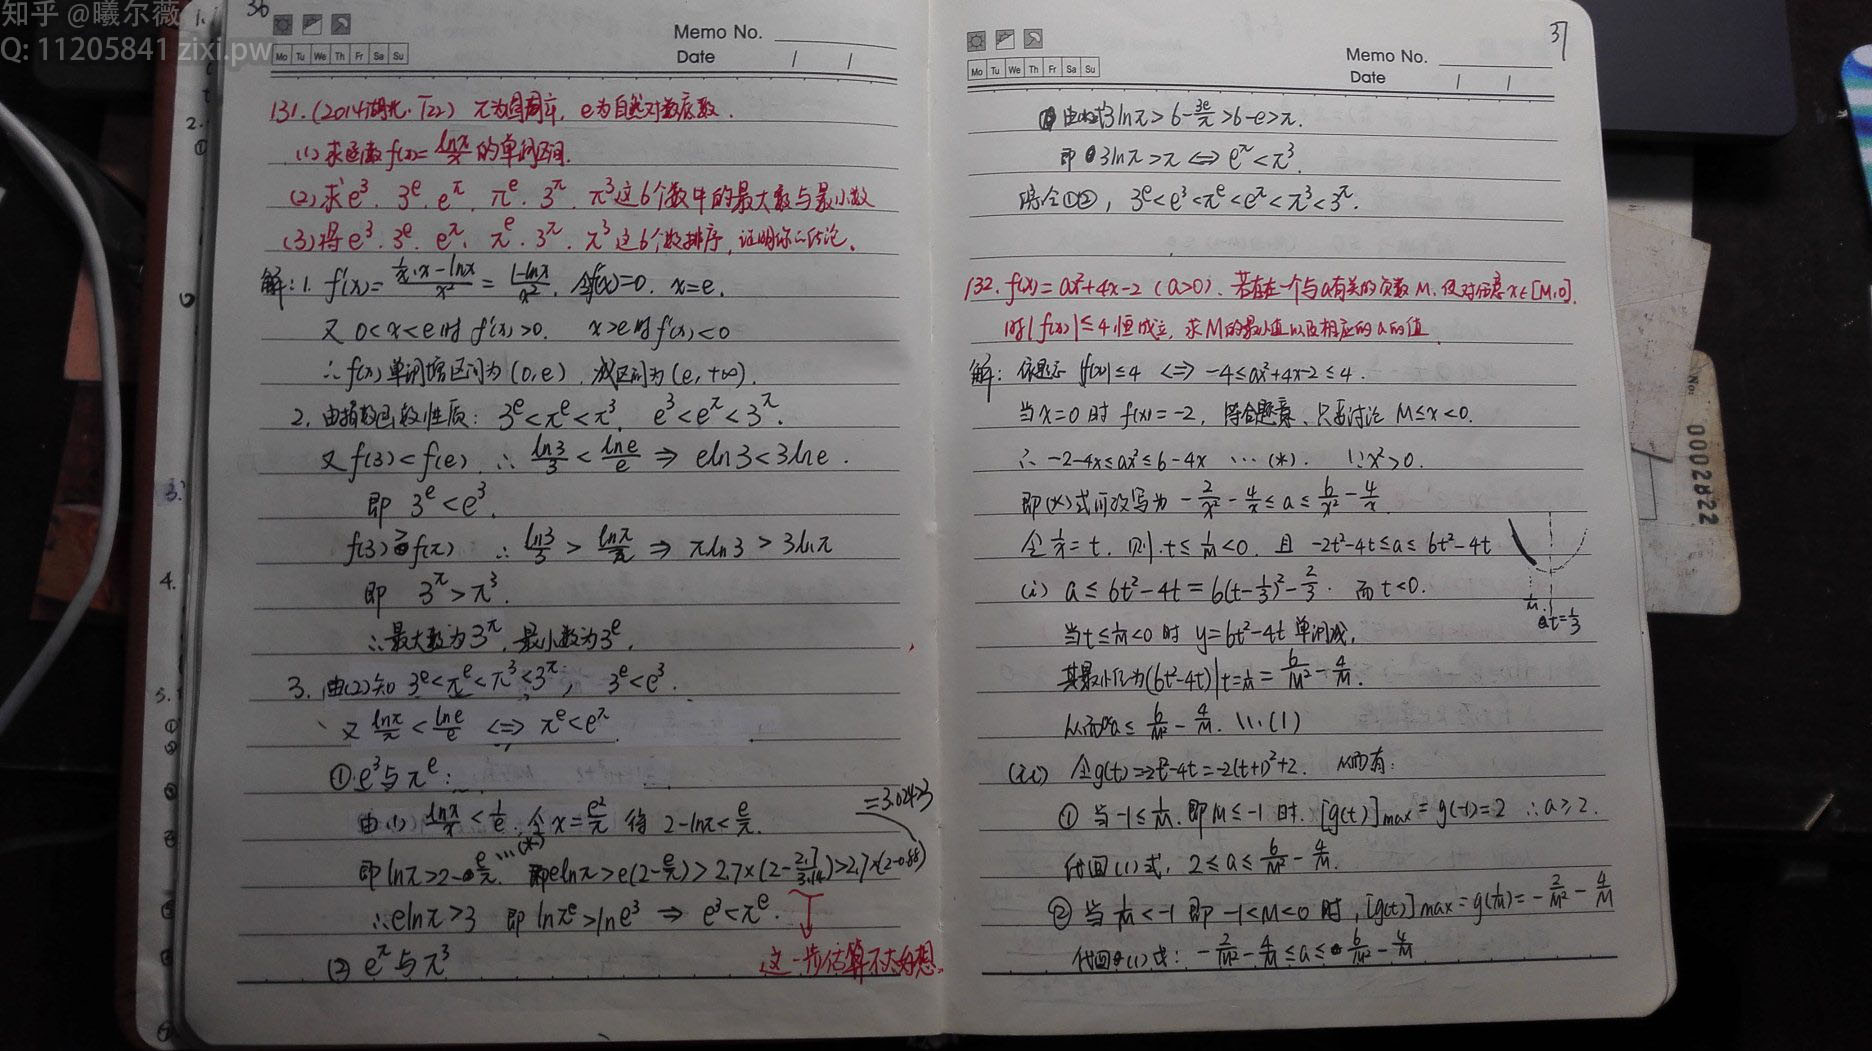 知乎 @曦尔薇
Q: 11205841 zixi.pw
36
Memo No.
Mo Tu We Th Fr Sa Su
Date / /
131. (2014湖北·T22) π为圆周率, e为自然对数底数.
(1) 求函数 f(x)=lnx/x 的单调区间.
(2) 求 e³. 3^e. e^π. π^e. 3^π. π³ 这6个数中的最大数与最小数
(3) 将 e³. 3^e. e^π. π^e. 3^π. π³ 这6个数排序, 证明你的结论.
解: 1. f'(x)=(1/x·x-lnx)/x² = (1-lnx)/x². 令f'(x)=0. x=e.
又 0<x<e时 f'(x)>0. x>e时 f'(x)<0
∴ f(x) 单调增区间为 (0,e). 减区间为 (e,+∞).
2. 由指数函数性质: 3^e<π^e<π³. e³<e^π<3^π.
又 f(3)<f(e). ∴ ln3/3 < lne/e ⇒ eln3<3lne.
即 3^e<e³.
f(3)>f(π) ∴ ln3/3 > lnπ/π ⇒ πln3>3lnπ
即 3^π>π³.
∴ 最大数为 3^π, 最小数为 3^e.
3. 由(2)知 3^e<π^e<π³<3^π; 3^e<e³.
又 lnπ/π < lne/e ⇔ π^e<e^π.
① e³与π^e:
由(1) lnx/x < 1/e. 令 x=e²/π 得 2-lnπ<e/π.
=3.02423
即 lnπ>2-e/π. …(*) 即elnπ>e(2-e/π)>2.7×(2-2.7/3.14)>2.7×(2-0.88)
∴ elnπ>3 即 lnπ^e>lne³ ⇒ e³<π^e.
这一步估算不太好想.
② e^π与π³
37
Memo No.
Mo Tu We Th Fr Sa Su
Date / /
由(*)式3lnπ>6-3e/π>6-e>π.
即 3lnπ>π ⇔ e^π<π³.
综合①②, 3^e<e³<π^e<e^π<π³<3^π.
132. f(x)=ax²+4x-2 (a>0). 若存在一个与a有关的负数M, 使对任意x∈[M,0].
时|f(x)|≤4恒成立, 求M的最小值以及相应的a的值.
解: 依题意 |f(x)|≤4 ⇔ -4≤ax²+4x-2≤4.
当x=0时 f(x)=-2, 符合题意. 只要讨论 M≤x<0.
∴ -2-4x≤ax²≤6-4x …(*). ∵x²>0.
即(*)式可改写为 -2/x²-4/x≤a≤6/x²-4/x.
令 1/x=t. 则 t≤1/M<0. 且 -2t²-4t≤a≤6t²-4t
(i) a≤6t²-4t=6(t-1/3)²-2/3. 而t<0.
1/M
t=1/3
当t≤1/M<0时 y=6t²-4t 单调减,
其最小值为(6t²-4t)|t=1/M = 6/M²-4/M.
从而a≤6/M²-4/M. …(1)
(ii) 令g(t)=-2t²-4t=-2(t+1)²+2. 从而有:
① 当-1≤1/M. 即M≤-1时. [g(t)]max=g(-1)=2 ∴a≥2.
代回(1)式, 2≤a≤6/M²-4/M.
② 当1/M<-1 即 -1<M<0时, [g(t)]max=g(1/M)=-2/M²-4/M
代回(1)式: -2/M²-4/M≤a≤6/M²-4/M
No.
0002822